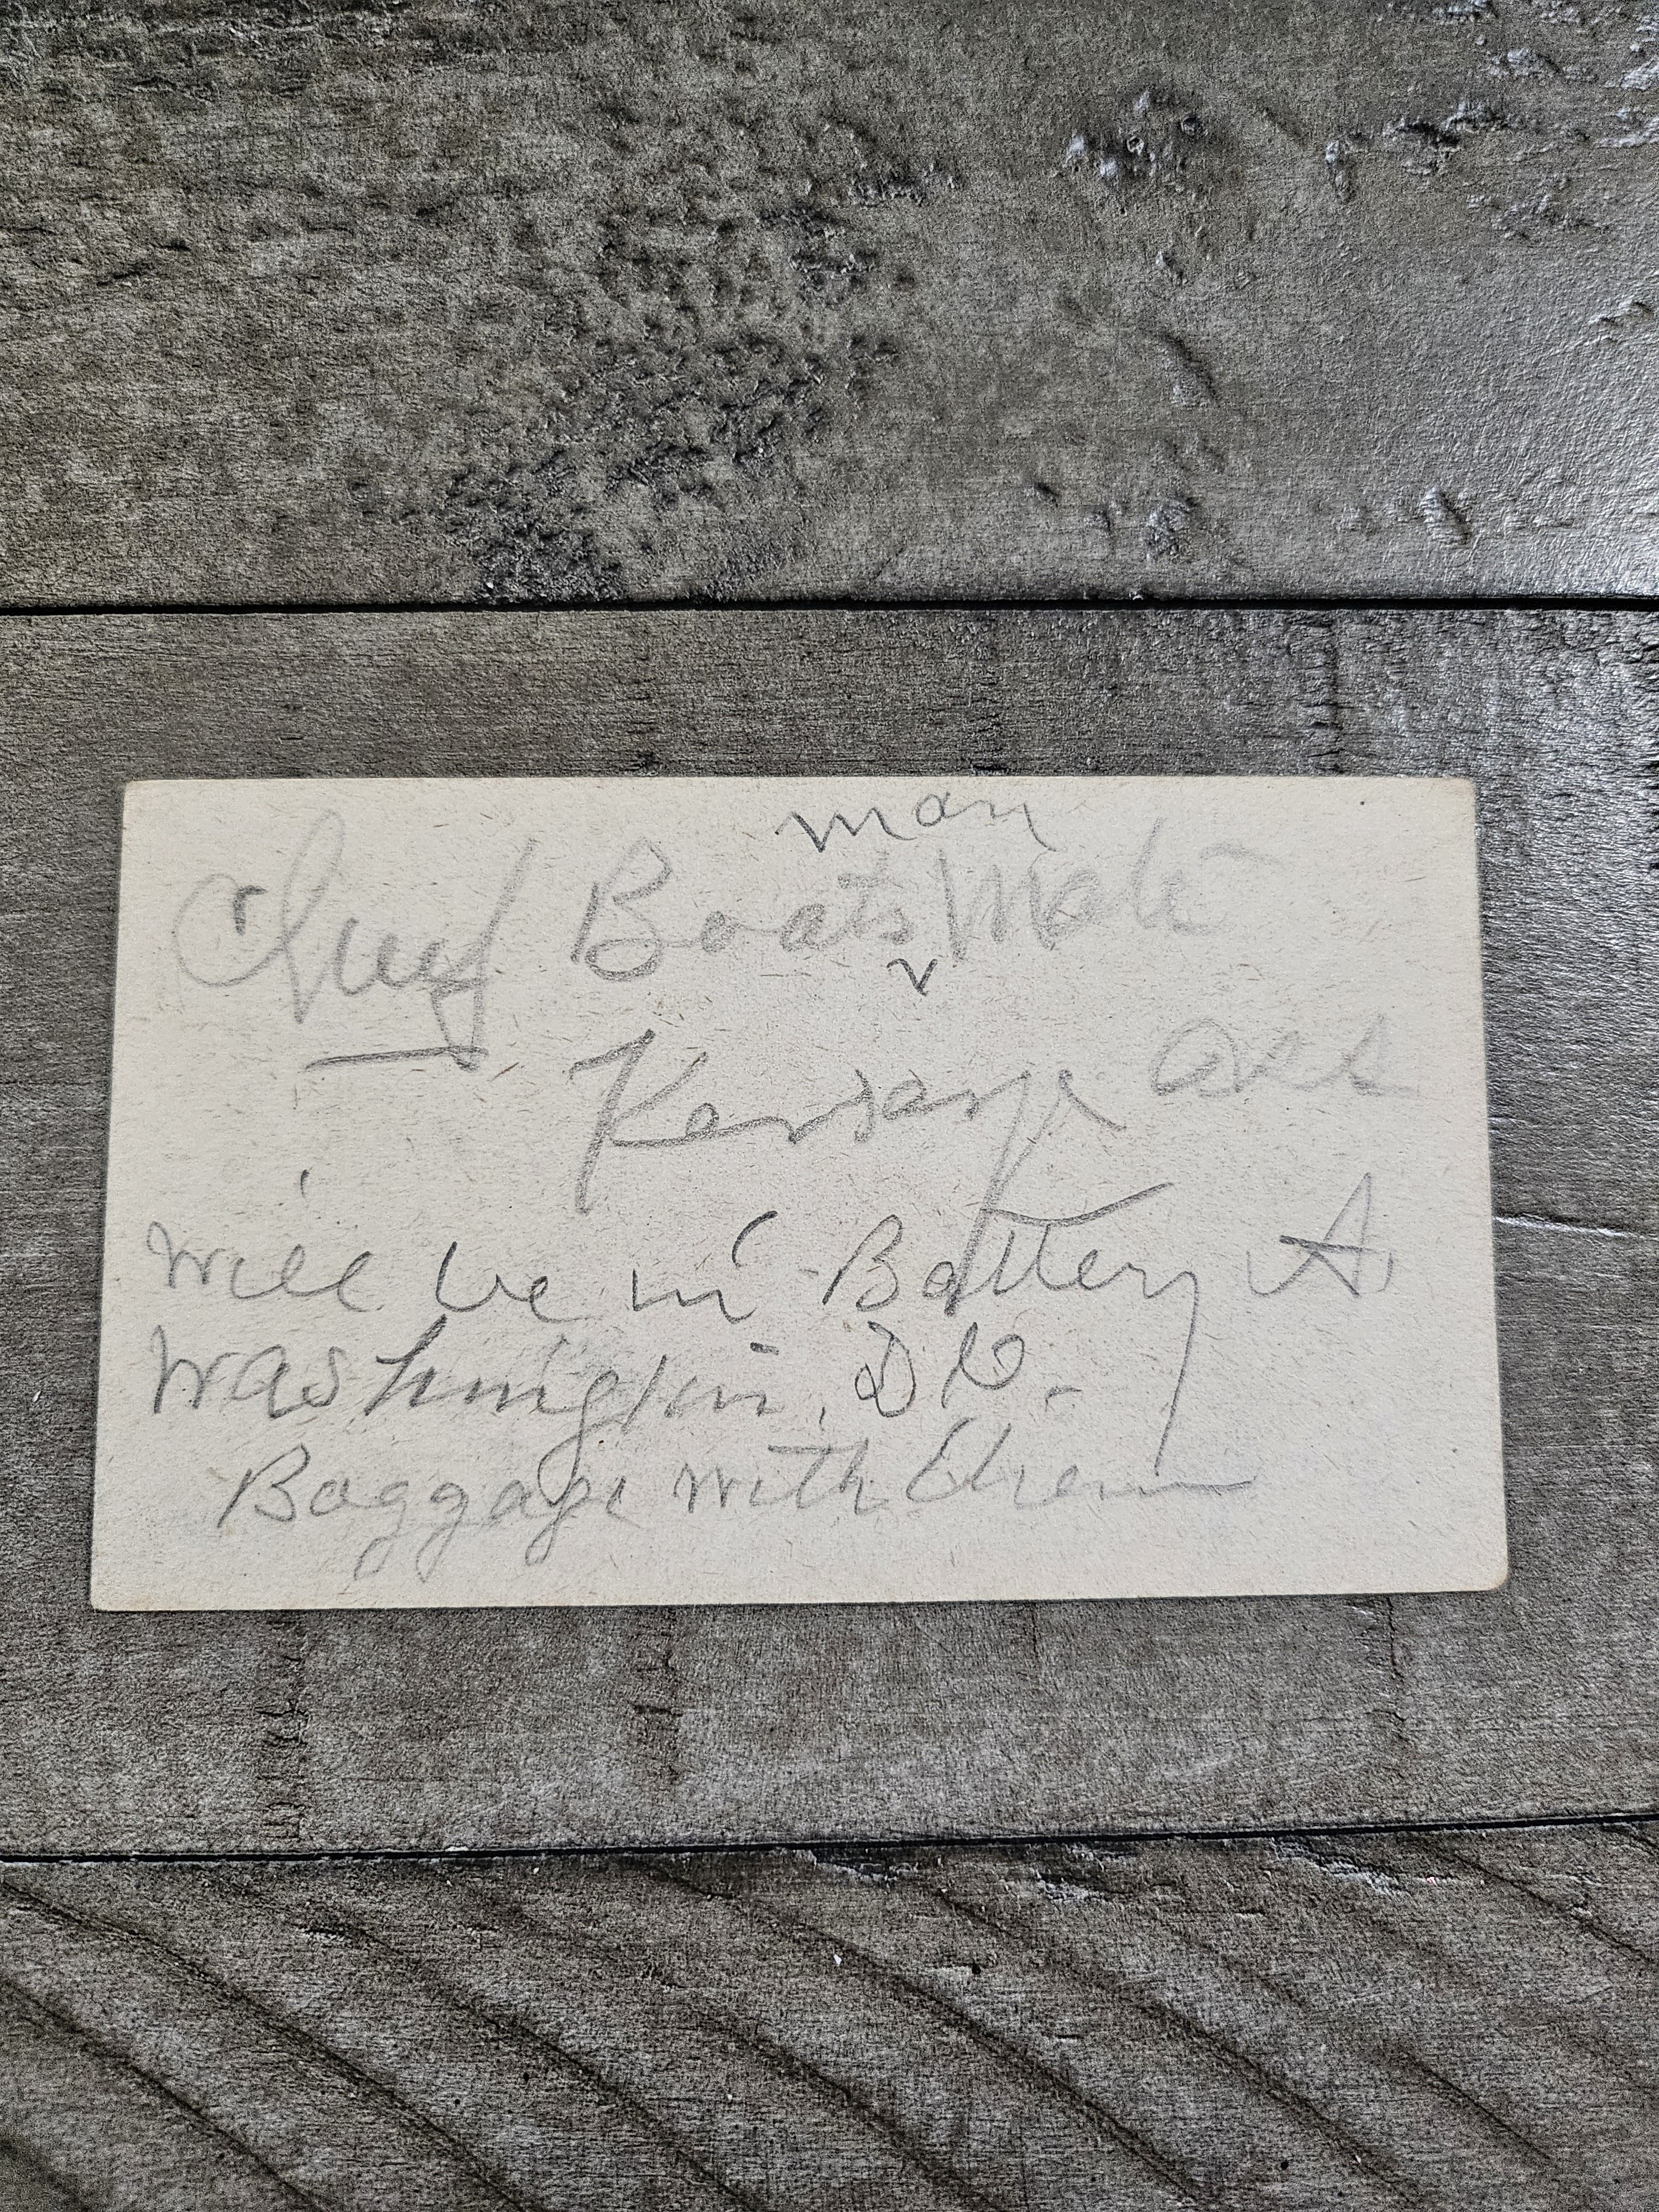 man
Chief Boats Mate
Will be in Battery A.
Washington, D.C.
Baggage with